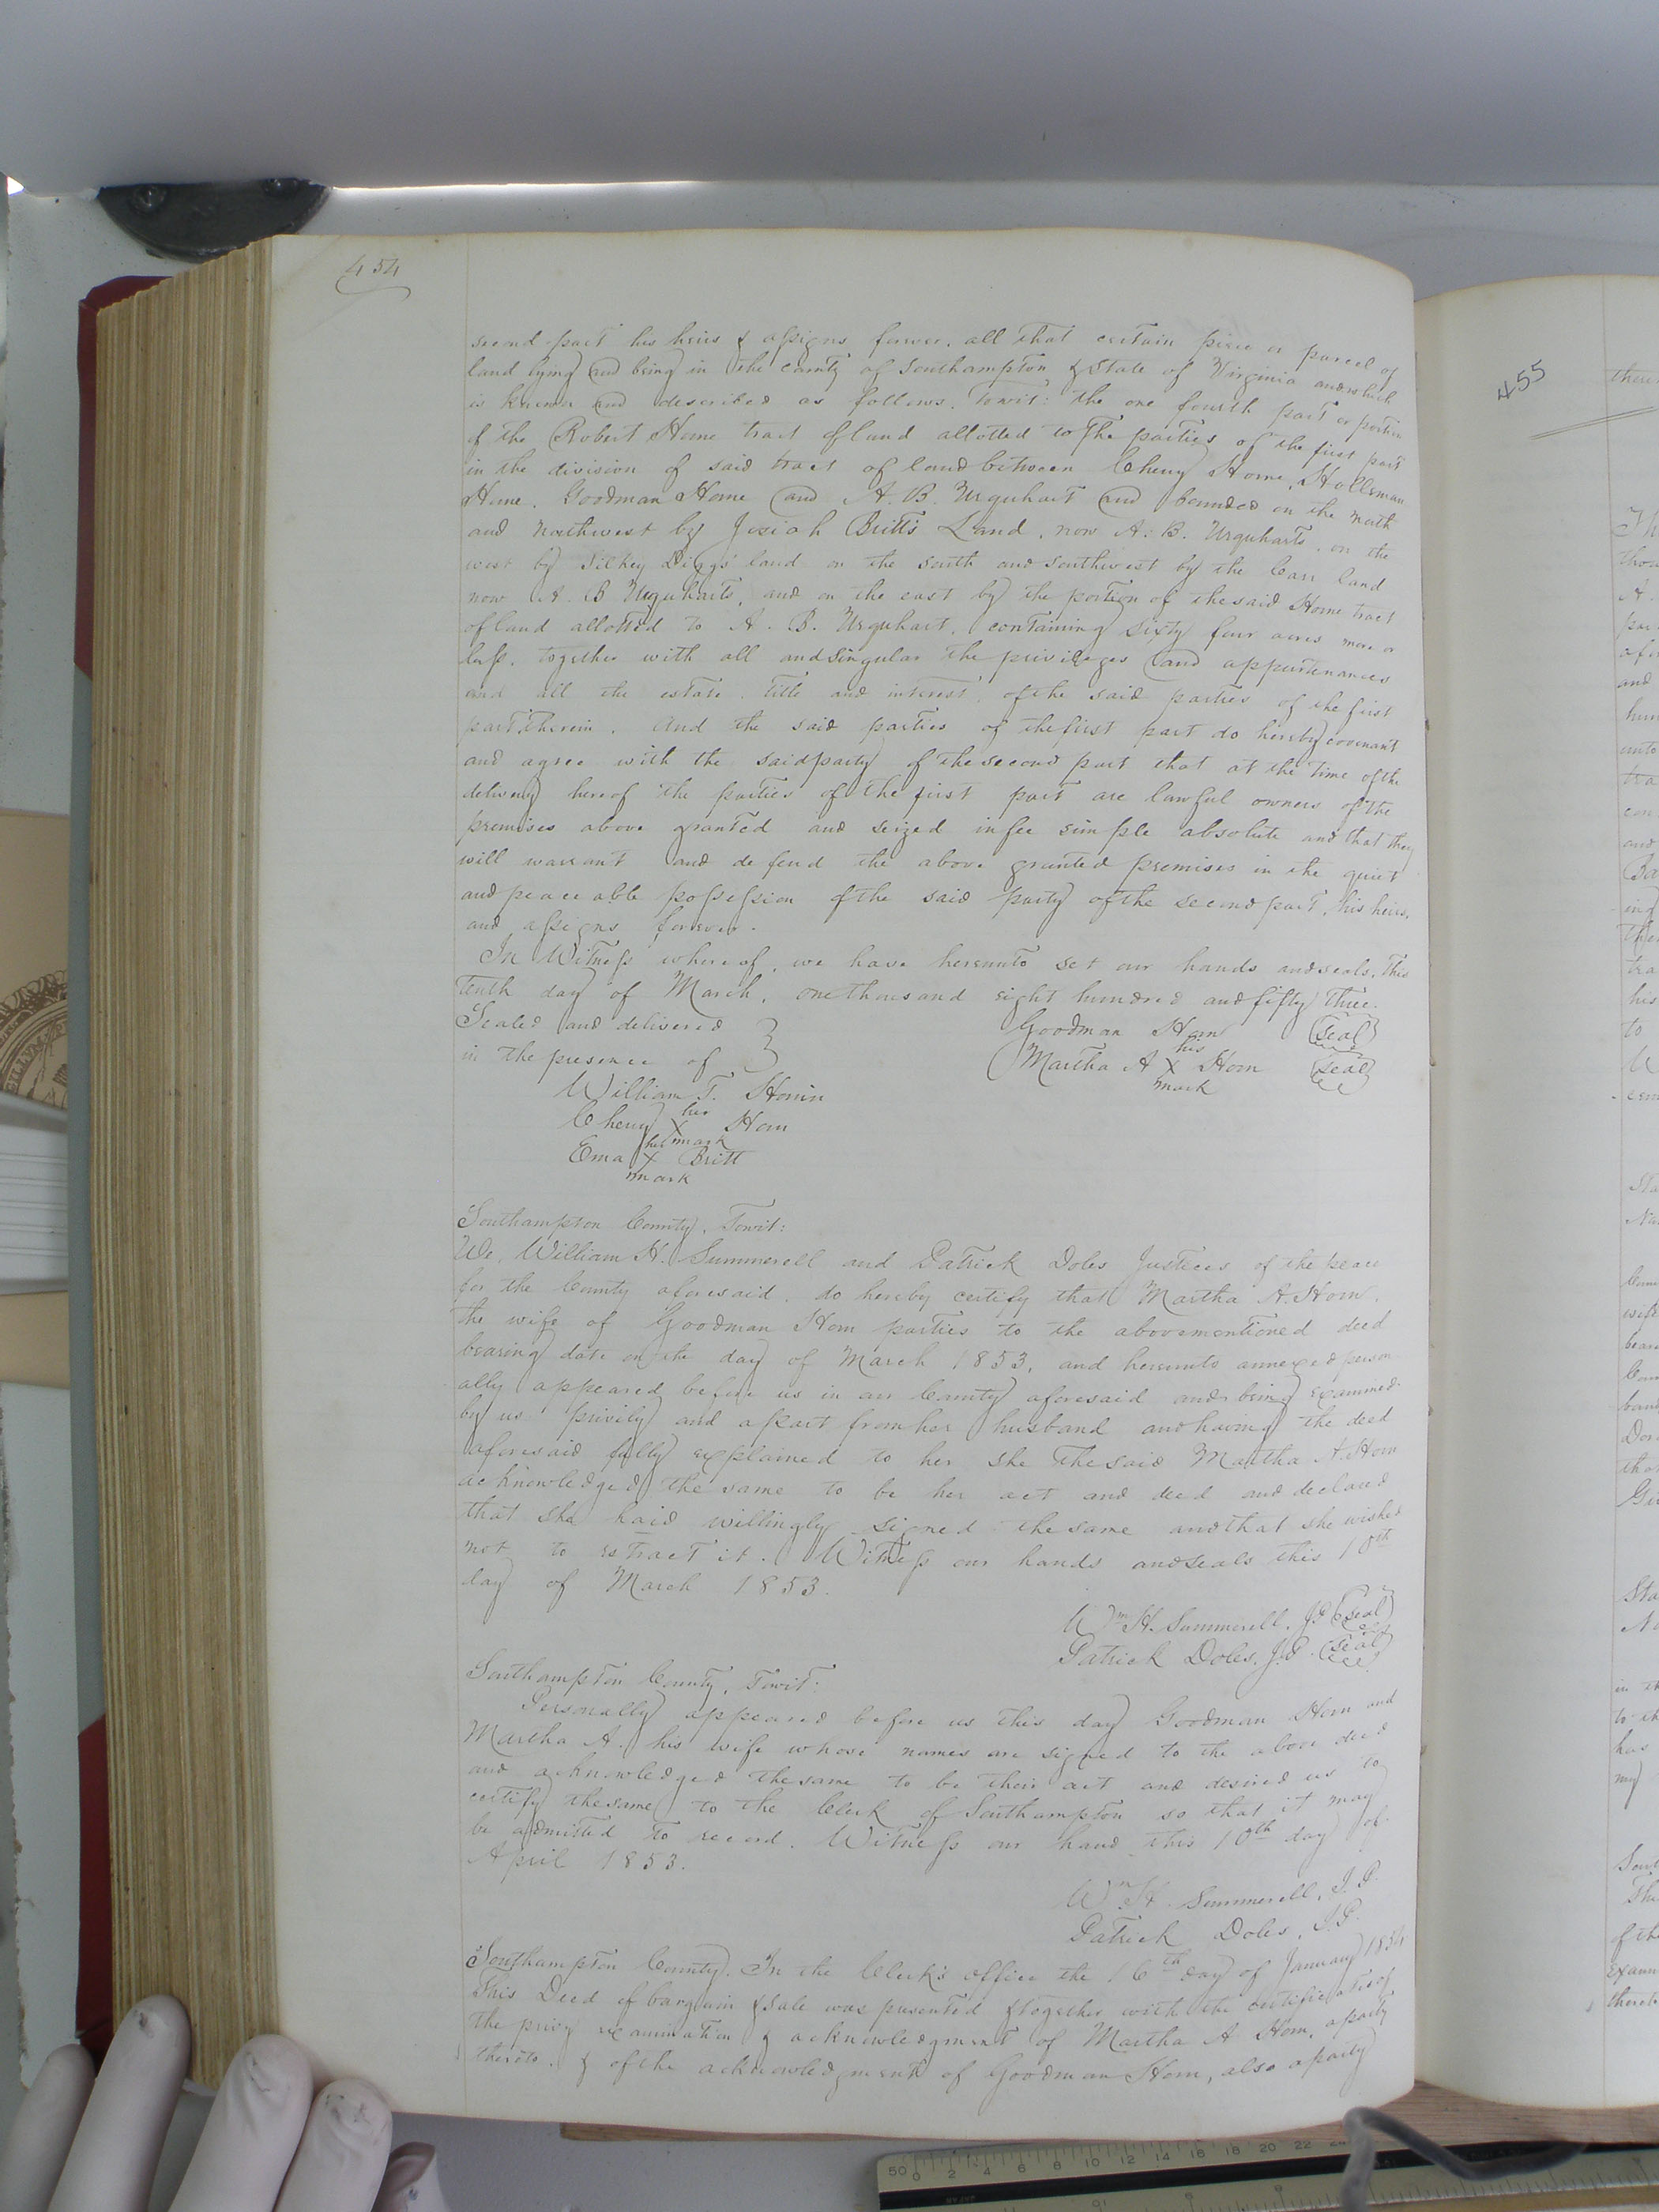 454
second part his heirs & assigns forever. all that certain piece or parcel of
land lying and being in the county of Southampton & State of Virginia and which
is known and described as follows. Towit: the one fourth part or portion
of the Robert Horne tract of land allotted to the parties of the first part
in the division of said tract of land between Cherry Horne, Holleman
Horne. Goodman Horne and A. B. Urquhart and bounded on the north
and northwest by Josiah Britt's Land, now A. B. Urquharts, on the
west by Silkey land on the south and southwest by the Carr land
now A. B Urquharts, and on the east by the portion of the said Horne tract
of land allotted to A. B. Urquhart, containing Sixty four acres more or
less, together with all and singular the privileges and appurtenances
and all the estate, title and interest, of the said parties of the first
part, therein. And the said parties of the first part do hereby covenant
and agree with the said party of the second part that at the time of the
delivery hereof the parties of the first part are lawful owners of the
premises above granted and seized in fee simple absolute and that they
will warrant and defend the above granted premises in the quiet
and peaceable possession of the said party of the second part, his heirs,
and assigns forever.
In Witness whereof, we have hereunto set our hands and seals, this
tenth day of March, one thousand eight hundred and fifty three.
Sealed and delivered } Goodman Horn (seal)
in the presence of his
Martha A X Horn (seal)
mark
William T. Horn
her
Cherry X Horn
mark
her
Ema X Britt
mark
Southampton County, Towit:
We, William H. Summerell and Patrick Doles Justices of the peace
for the County aforesaid, do hereby certify that Martha A. Horn,
the wife of Goodman Horn parties to the abovementioned deed
bearing date on the day of March 1853, and hereunto annexed person
ally appeared before us in our County aforesaid and being examined
by us privily and apart from her husband and having the deed
aforesaid fully explained to her she the said Martha A. Horn
acknowledged the same to be her act and deed and declared
that she had willingly signed the same and that she wished
not to retract it. Witness our hands and seals this 10th
day of March 1853.
Wm H. Summerell, J.P. (seal)
Patrick Doles, J.P. (seal)
Southampton County, Towit:
Personally appeared before us this day Goodman Horn and
Martha A. his wife whose names are signed to the above deed
and acknowledged the same to be their act and desired us to
certify the same to the Clerk of Southampton so that it may
be admitted to record. Witness our hand this 10th day of
April 1853.
Wm H. Summerell, J.P.
Patrick Doles, J.P.
Southampton County. In the Clerk's office the 16th day of January 1854
This Deed of bargain & sale was presented & together with the certificate of
the privy examination & acknowledgment of Martha A Horn, a party
thereto, & of the acknowledgment of Goodman Horn, also a party
455
50 0 2 4 6 8 10 12 14 16 18 20 22